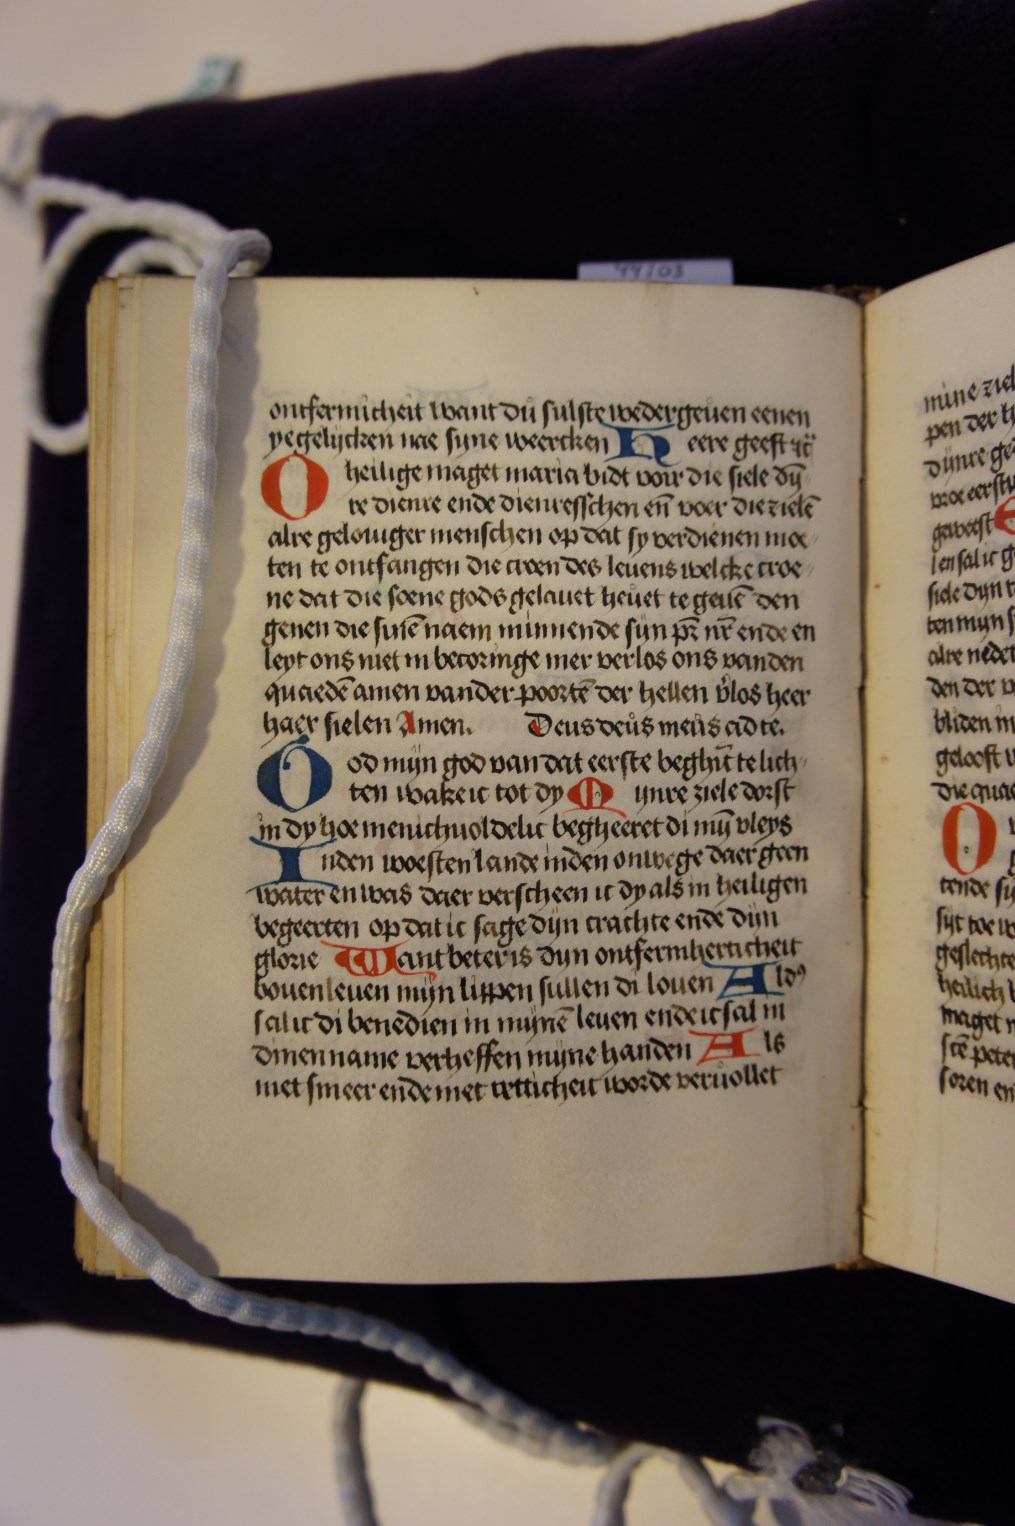 44/03
ontfermicheit want du sulste wedergeuen eenen
yegelijcken nae sijne weercken Heere geeft
O heilige maget maria bidt voir die siele dȳ
re dienre ende dienressschen en̄ voer die zielē
alre gelouiger menschen op dat sy verdienen moe
ten te ontfangen die croen des leuens welcke croe
ne dat die soene gods gelauet heuet te geuē den
genen die naem minnende sijn pr̄ nr̄ ende en
leyt ons niet in becoringe mer verlos ons vanden
quaedē amen vander poortē der hellen v̓los heer
haer sielen Amen. Deus deus meus ad te.
God mijn god van dat eerste beghīt te lich
ten wake ic tot dy Mijnre ziele dorst
in dy hoe menichuoldelic begheeret di mijn vleys
Inden woesten lande inden onwege daer geen
water en was daer verscheen ic dy als in heiligen
begeerten op dat ic sage dijn crachte ende dijn
glorie Want beter is dijn ontfermherticheit
bouen leuen mijn lippen sullen di louen Aldꝰ
sal ic di benedien in mijnē leuen ende ic sal in
dinen name verheffen mijne handen Als
met smeer ende met vetticheit worde veruollet
mine ziel
pen der h
dijnre ge
geweest
len sal ic g
siele dijn
ten mijn s
alre neder
den der v
bliden in
gelooft
die quae
O
tende sij
sijt
geslechte
heilich
maget
scē peter
soren en